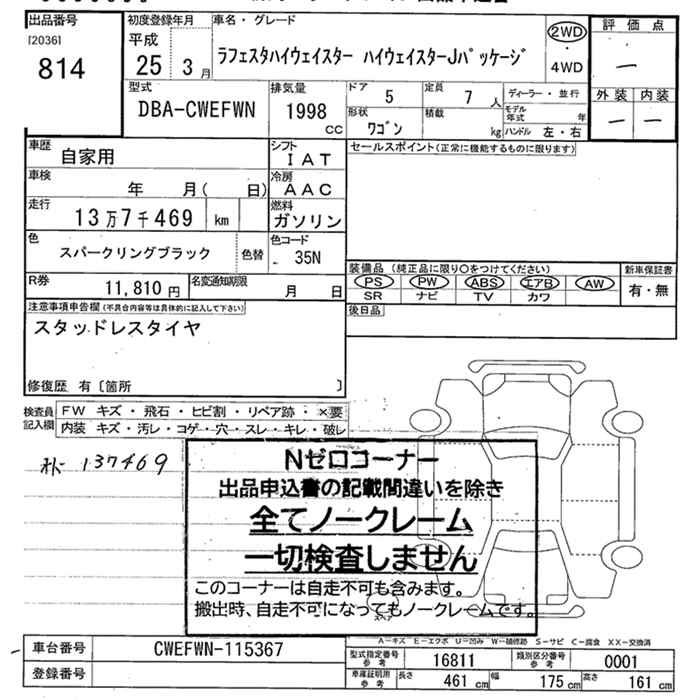 出品番号
[2036]
814
初度登録年月
平成
25年 3月
車名・グレード
ラフェスタハイウェイスター ハイウェイスターJパッケージ
2WD
・
4WD
評価点
ー
外装 内装
ー ー
型式
DBA-CWEFWN
排気量
1998
cc
ドア
5
定員
7人
形状
ワゴン
積載
kg
ディーラー・並行
モデル年式 年
ハンドル 左・右
車歴
自家用
シフト
IAT
車検
年 月( 日)
冷房
AAC
走行
13万7千469 km
燃料
ガソリン
色
スパークリングブラック
色替
色コード
- 35N
R券
11,810円
名変通知期限
月 日
セールスポイント(正常に機能するものに限ります)
装備品 (純正品に限り○をつけてください)
PS PW ABS エアB AW
SR ナビ TV カワ
新車保証書
有・無
後日品
注意事項申告欄(不具合内容等は具体的に記入して下さい)
スタッドレスタイヤ
修復歴 有〔箇所 〕
検査員記入欄
FW キズ・飛石・ヒビ割・リペア跡・×要
内装 キズ・汚レ・コゲ・穴・スレ・キレ・破レ
137469
Nゼロコーナー
出品申込書の記載間違いを除き
全てノークレーム
一切検査しません
このコーナーは自走不可も含みます。
搬出時、自走不可になってもノークレームです。
スペア
A-キズ E-エクボ U-凹み W-補修跡 S-サビ C-腐食 XX-交換済
車台番号
CWEFWN-115367
登録番号
型式指定番号
参考
16811
類別区分番号
参考
0001
車庫証明用
参考
長さ 461 cm
幅 175 cm
高さ 161 cm